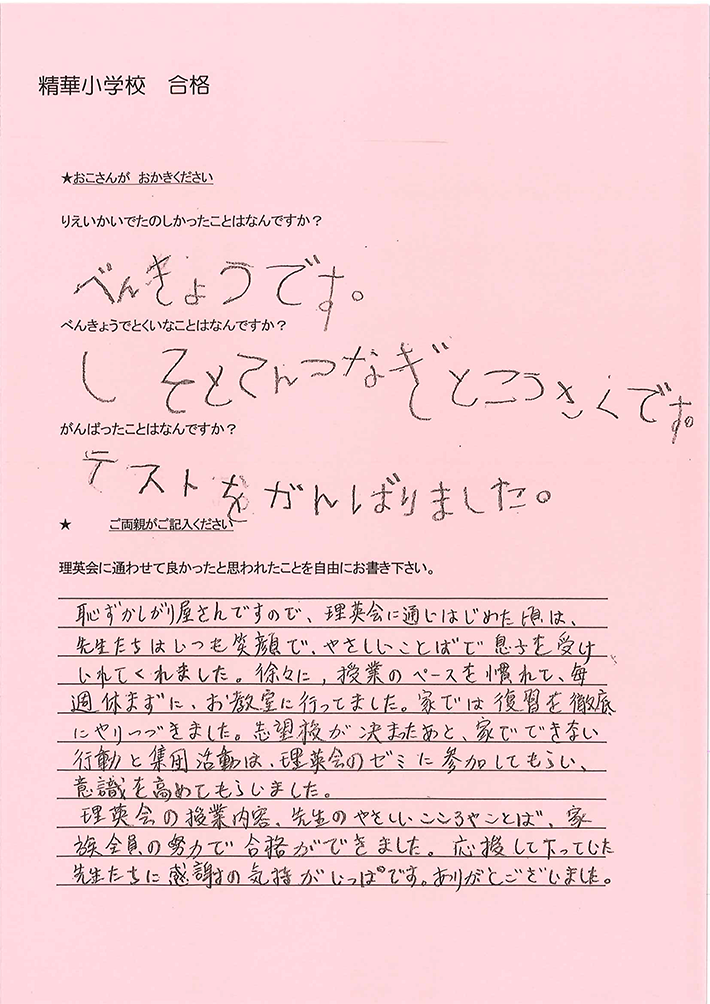 精華小学校　合格
★おこさんが　おかきください
りえいかいでたのしかったことはなんですか？
べんきょうです。
べんきょうでとくいなことはなんですか？
しそとてんつなぎとこうさくです。
がんばったことはなんですか？
テストをがんばりました。
★　ご両親がご記入ください
理英会に通わせて良かったと思われたことを自由にお書き下さい。
恥ずかしがり屋さんですので、理英会に通いはじめた頃は、
先生たちはいつも笑顔で、やさしいことばで息子を受け
いれてくれました。徐々に，授業のペースを慣れて、毎
週休まずに、お教室に行ってました。家では復習を徹底
にやりつづきました。志望校が決まったあと、家でできない
行動と集団活動は、理英会のゼミに参加してもらい、
意識を高めてもらいました。
理英会の授業内容、先生のやさしいこころやことば、家
族全員の努力で合格ができました。応援して下っていた
先生たちに感謝の気持がいっぱいです。ありがとございました。